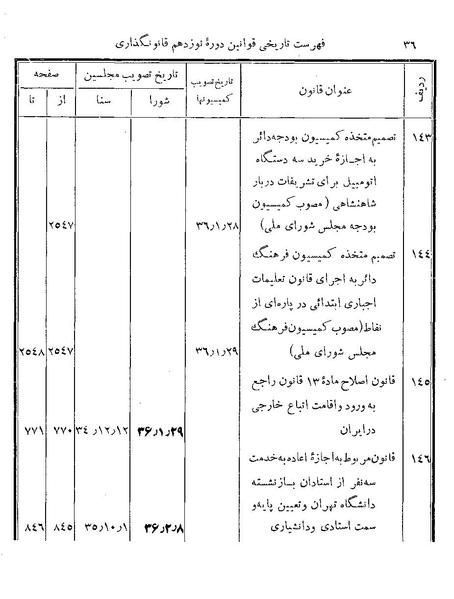 ۳۶
فهرست تاریخی قوانین دورهٔ نوزدهم قانونگذاری
ردیف
عنوان قانون
تاریخ تصویب کمیسیونها
تاریخ تصویب مجلسین
شورا
سنا
صفحه
از
تا
۱۴۳
تصمیم متخذه کمیسیون بودجه دائر
به اجازهٔ خرید سه دستگاه
اتومبیل برای تشریفات دربار
شاهنشاهی (مصوب کمیسیون
بودجه مجلس شورای ملی) ۳۶٫۱٫۲۸ ۲۵۴۷
۱۴۴
تصمیم متخذه کمیسیون فرهنگ
دائر به اجرای قانون تعلیمات
اجباری ابتدائی در پاره‌ای از
نقاط (مصوب کمیسیون فرهنگ
مجلس شورای ملی) ۳۶٫۱٫۲۹ ۲۵۴۷ ۲۵۴۸
۱۴۵
قانون اصلاح مادهٔ ۱۳ قانون راجع
به ورود و اقامت اتباع خارجی
در ایران ۳۶٫۱٫۲۹ ۳۴٫۱۲٫۱۲ ۷۷۰ ۷۷۱
۱۴۶
قانون مربوط به اجازهٔ اعاده به خدمت
سه نفر از استادان بازنشسته
دانشگاه تهران و تعیین پایه و
سمت استادی و دانشیاری ۳۶٫۲٫۸ ۳۵٫۱۰٫۱ ۸۴۵ ۸۴۶